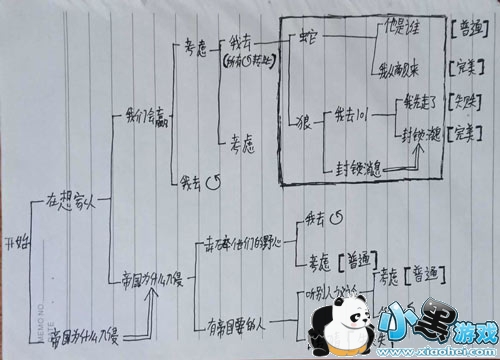 他是谁 [普通]
考虑 我去 蛇
(所有↺转此)
我从帝国来 [完美]
我们会赢
狼 我去101 我先走了 [失败]
考虑 封锁消息 [完美]
我去↺ 封锁消息
在想家人
我去↺
开始
击碎他们的野心
考虑 [普通]
帝国为什么入侵
听别人 考虑 [普通]
有帝国要的人
帝国为什么入侵
MEMO NO.
DATE
小黑游戏
www.xiaohei.com